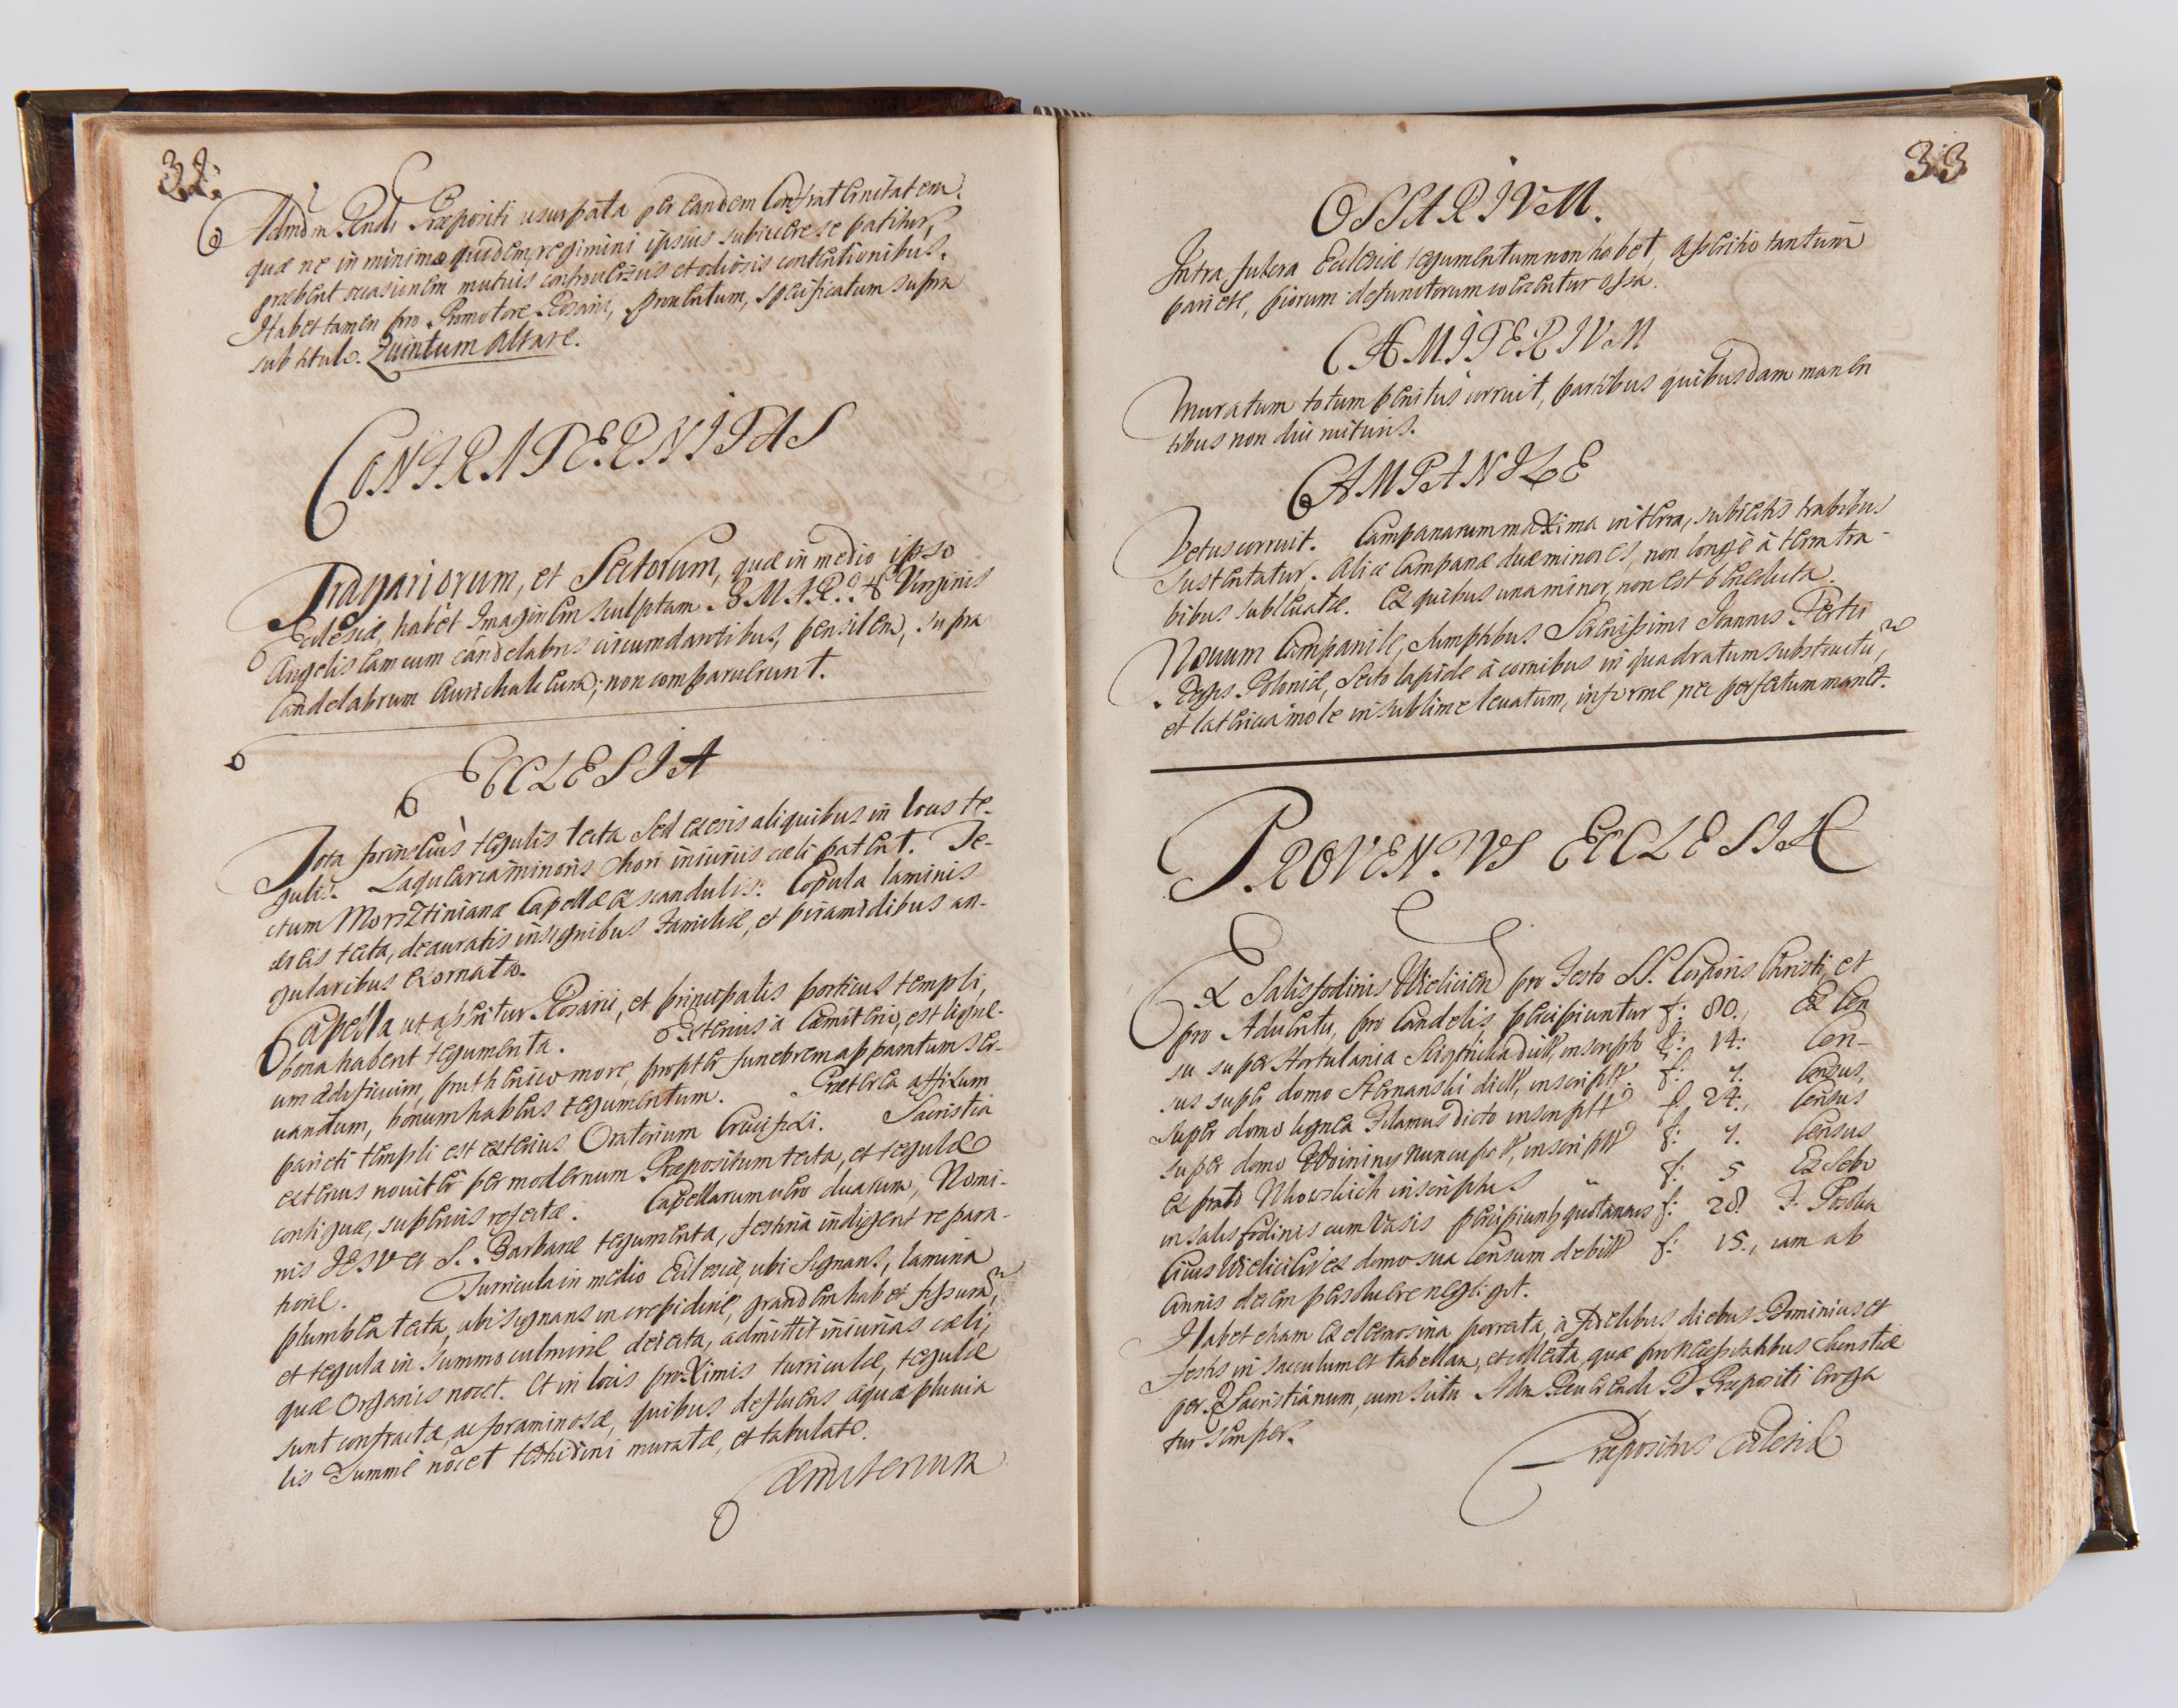 32.
Admdm Rndi Præpositi usurpata per eandem Confraternitatem.
quæ ne in minimo quidem, regimini ipsius subijcere se patitur,
præbent occasionem mutuis controuersiis et odiosis contentionibus.
Habet tamen pro Promotore Rosarii, prouentum, specificatum supra
sub titulo. Quintum Altare.
CONFRATERNITAS
Tragariorum, et Sectorum, quæ in medio ipso
Ecclesiæ, habet Imaginem sculptam B. MARIÆ Virginis
Angelis eam cum candelabris circumdantibus, pensilem, supra
Candelabrum Aurichalceum; non comparuerunt.
ECCLESIA
Tota forinsecus tegulis tecta sed exesis aliquibus in locis te-
gulis. Laquearia minoris Chori iniuriis cœli patent. Te-
ctum Morsztinianæ Capellæ ex scandulis. Copula laminis
æreis tecta, deauratis insignibus Familiæ, et piramidibus an-
gularibus exornata.
Capella ut asseritur Rosarii, et principalis porticus templi,
bona habent tegumenta. Exterius à Cæmiterio, est ligne-
um ædificium, pruthenico more, propter funebrem apparatum ser-
uandum, bonum habens tegumentum. Præterea affixum
parieti templi est exterius Oratorium Crucifixi. Sacristia
exterius nouiter per modernum Præpositum tecta, et tegulæ
contiguæ, superius refectæ. Capellarum uero duarum, Nomi-
nis JESV et S. Barbaræ tegumenta, festina indigent repara-
tione. Turricula in medio Ecclesiæ, ubi Signans, lamina
plumbea tecta, ubi signans in crepidine, grandem habet fissuram,
et tegula in summo culmine deiecta, admittit iniurias cœli,
quæ Organis nocet. Et in locis proximis turriculæ, tegulæ
sunt confractæ, ac foraminosæ, quibus defluens aqua pluuia
lis summe nocet testudini muratæ, et tabulato.
Cæmiterium
33
OSSARIVM.
Intra septa Ecclesiæ tegumentum non habet, asseritio tantum
pariete, piorum defunctorum coercentur ossa.
CÆMITERIVM
Muratum totum penitus corruit, partibus quibusdam manen
tibus non diu mituris.
CAMPANILE
Vetus corruit. Campanarum maxima in terra, subiectis trabibus
sustentatur. Aliæ Campanæ duæ minores, non longè à terra tra-
bibus subleuatæ. Ex quibus una minor, non est benedicta.
Nouum Campanile, sumptibus Serenissimi Ioannis Tertii
Regis Poloniæ, secto lapide à cornibus in quadratum substructu,
et latericia mole in sublime leuatum, informe nec perfectum manet.
PROVENTVS ECCLESIÆ
Ex Salisfodinis Wieliciens pro Festo SS. Corporis Christi, et
pro Aduentu, pro Candelis, percipiuntur f: 80., Ex Cen
su super Hortulania dict, inscripto f: 14: Cen-
sus super domo Hermanski dict, inscript. f: 7. Census,
super domo lignea Filamus dicto inscript f. 24., Census
super domo Wdoininy nuncupat, inscript f: 7. Census
ex prato inscriptus " f: 5 Ex Sebo
in salis fodinis cum Vasis percipiunt quotannis f: 28. F. Poska
Ciuis Wieliciens ex domo sua Censum debitt f: 15., iam ab
Annis decem persoluere negligit.
Habet etiam ex eleemosina porrecta à fidelibus diebus Dominicis et
festis in sacculum et tabellam, et collecta, quæ pro necessitatibus Sacristiæ
per P. Sacristianum, cum scitu Adm Reuerendi D Præpositi eroga
tur semper.
Præpositus Ecclesiæ